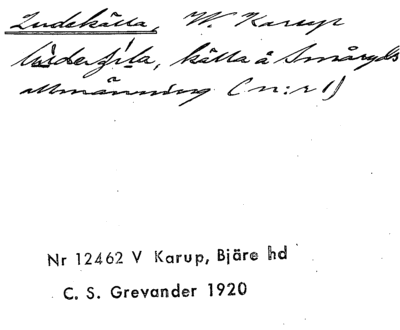 Ludekälla, W. Karup
källa å Smäryds
allmänning (n:r 1)
Nr 12462 V Karup, Bjäre hd
C. S. Grevander 1920